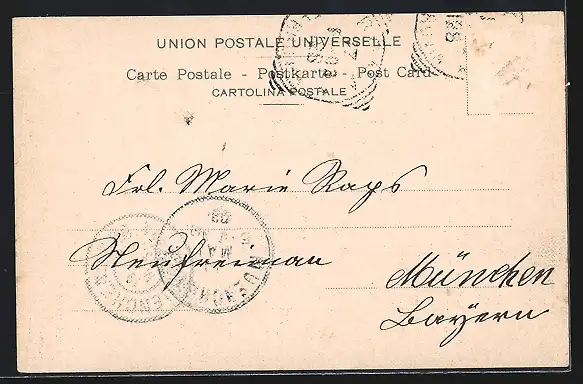 UNION POSTALE UNIVERSELLE
Carte Postale - Postkarte - Post Card
CARTOLINA POSTALE
Frl. Marie Raps
Neufreiman
München
Bayern